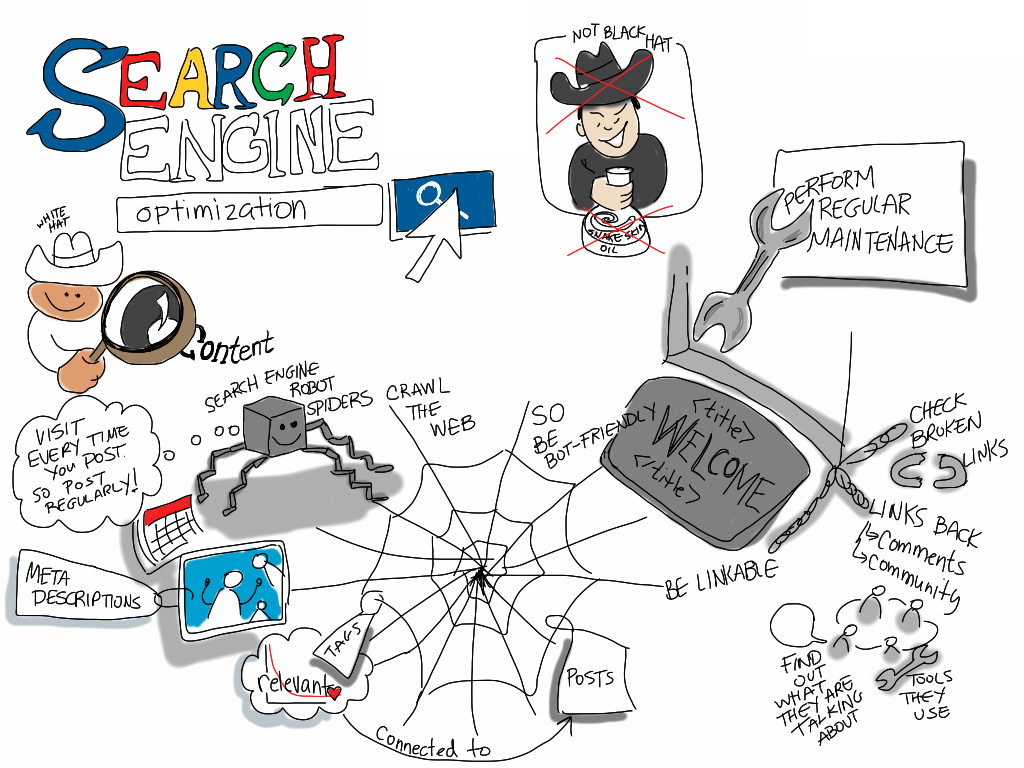 SEARCH
ENGINE
optimization
NOT BLACK HAT
SNAKE-SKIN
OIL
PERFORM
REGULAR
MAINTENANCE
WHITE
HAT
Content
SEARCH ENGINE
ROBOT
SPIDERS
CRAWL
THE
WEB
SO
BE
BOT-FRIENDLY
<title>
WELCOME
</title>
CHECK
BROKEN
LINKS
VISIT
EVERY TIME
YOU POST.
SO POST
REGULARLY!
LINKS BACK
Comments
Community
META
DESCRIPTIONS
BE LINKABLE
TAGS
relevant
POSTS
Connected to
FIND
OUT
WHAT
THEY ARE
TALKING
ABOUT
TOOLS
THEY
USE